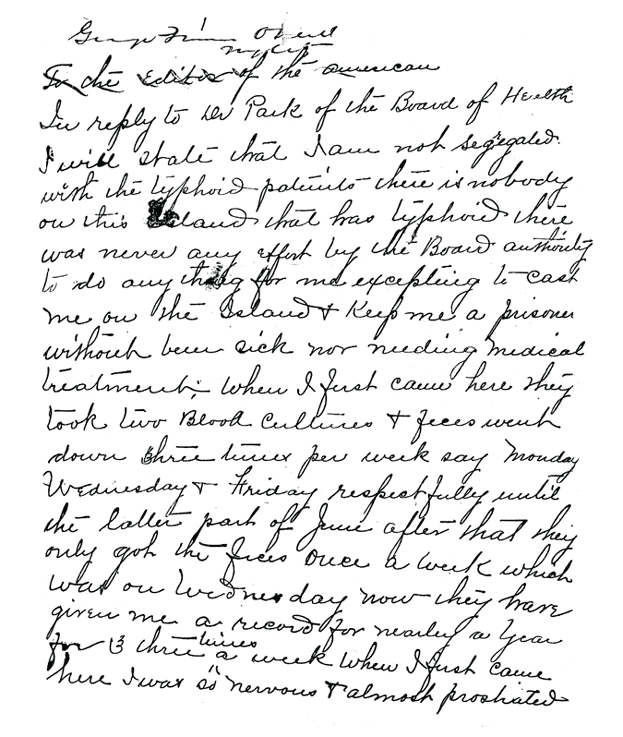 George Francis O'Neill
my
To the Editor of the American
In reply to Dr Park of the Board of Health
I will state that I am not segregated
with the typhoid patients there is nobody
on this Island that has typhoid there
was never any effort by the Board authority
to do any thing for me excepting to cast
me on the Island & Keep me a prisoner
without been sick nor needing medical
treatment; when I first came here they
took two Blood Cultures & feces went
down three times per week say Monday
Wednesday & Friday respectfully until
the latter part of June after that they
only got the feces once a week which
was on Wednesday now they have
given me a record for nearly a year
for three times a week when I first came
here I was so nervous & almost prostrated